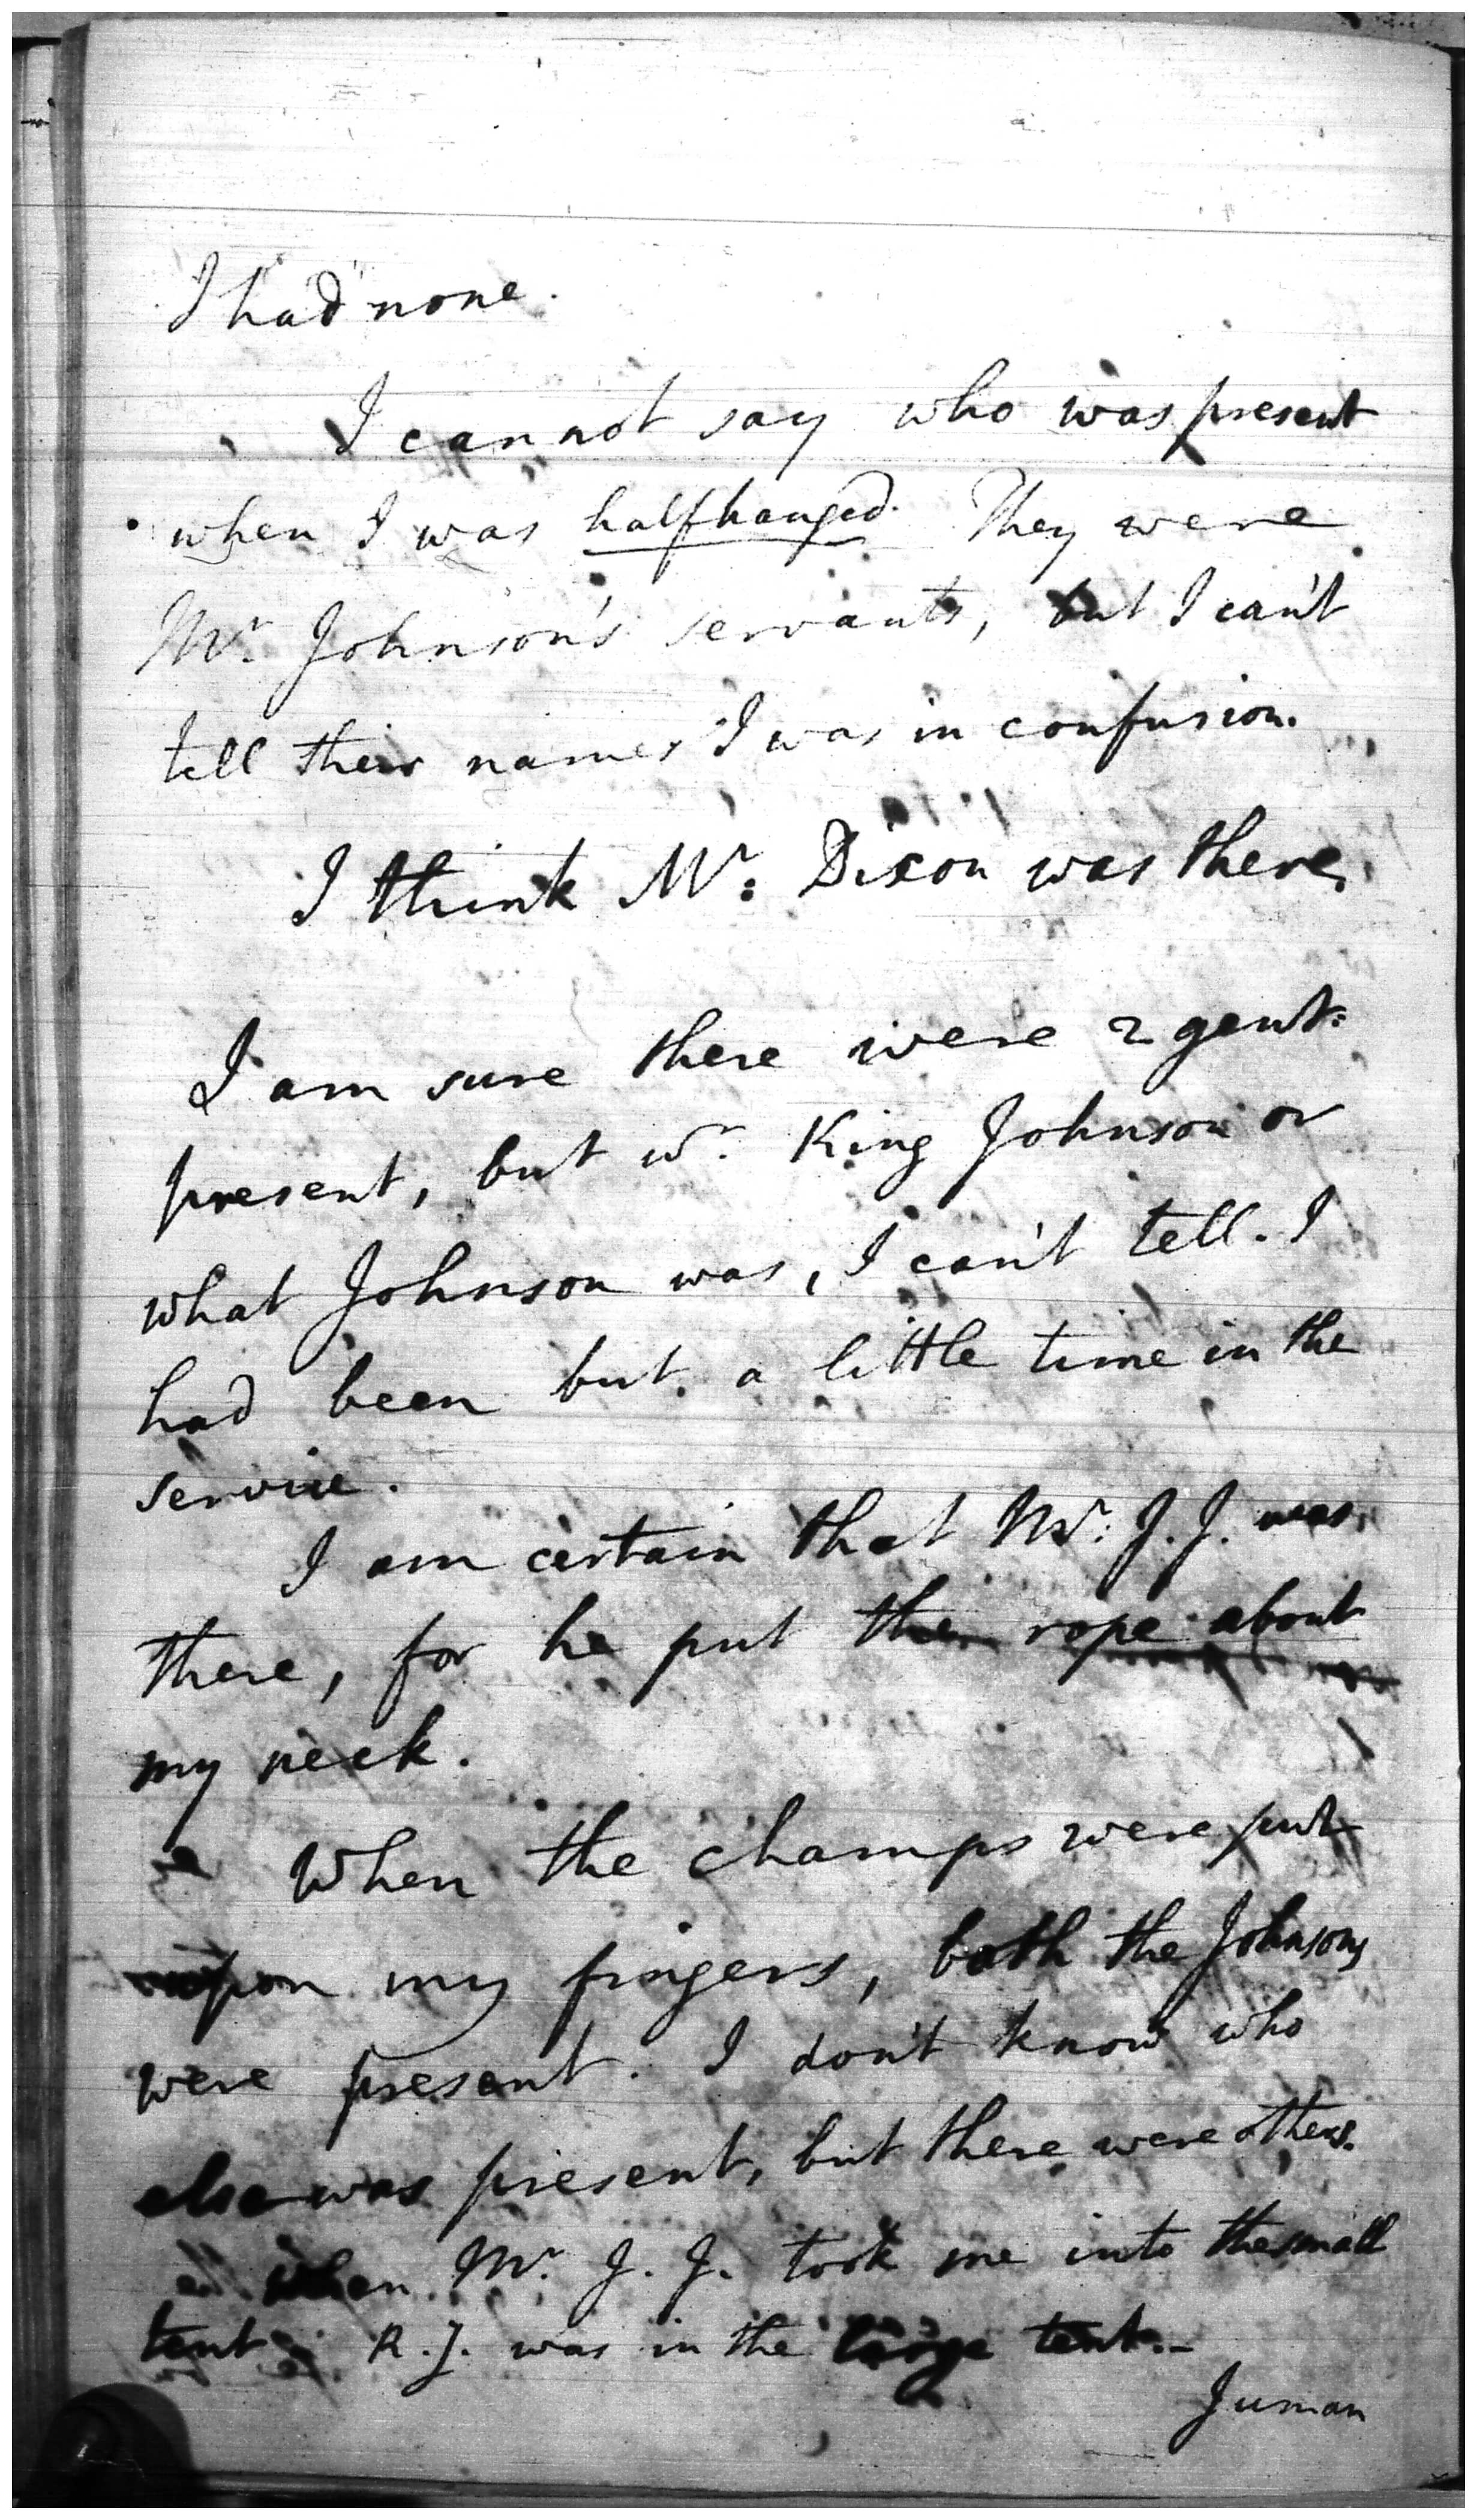 I had none.
I cannot say who was present
when I was halfhanged. They were
Mr. Johnson's servants, but I can't
tell their names I was in confusion.
I think Mr: Dixon was there,
I am sure there were 2 gent:
present, but wr. King Johnson or
what Johnson was, I can't tell. I
had been but a little time in the
service.
I am certain that Mr: J. J. was
there, for he put the rope about
my neck.
When the champs were put
upon my fingers, both the Johnsons
were present. I don't know who
else was present, but there were others.
when Mr. J. J. took me into the small
tent R. J. was in the large tent.-
Juman